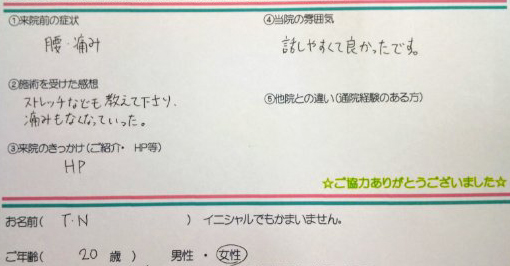 ①来院前の症状
腰・痛み
②施術を受けた感想
ストレッチなども教えて下さり、
痛みもなくなっていった。
③来院のきっかけ(ご紹介・ HP等)
HP
④当院の雰囲気
話しやすくて良かったです。
⑤他院との違い(通院経験のある方)
☆ご協力ありがとうございました☆
お名前( T・N ) イニシャルでもかまいません。
ご年齢( 20 歳 ) 男性 ・ 女性